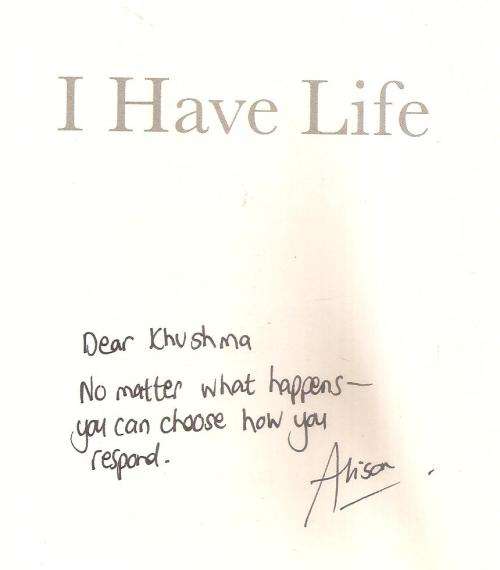 I Have Life
Dear Khushma
No matter what happens—
you can choose how you
respond.
Alison